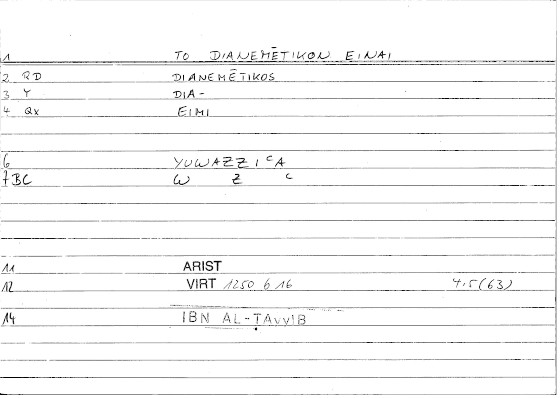 1 TO DIANEMĒTIKON EINAI
2 RD DIANEMĒTIKOS
3 Y DIA-
4 Qx EIMI
6 YUWAZZIᶜA
7 BC W Z ᶜ
11 ARIST
12 VIRT 1250 6 16 4.5(63)
14 IBN AL-ṬAyyIB